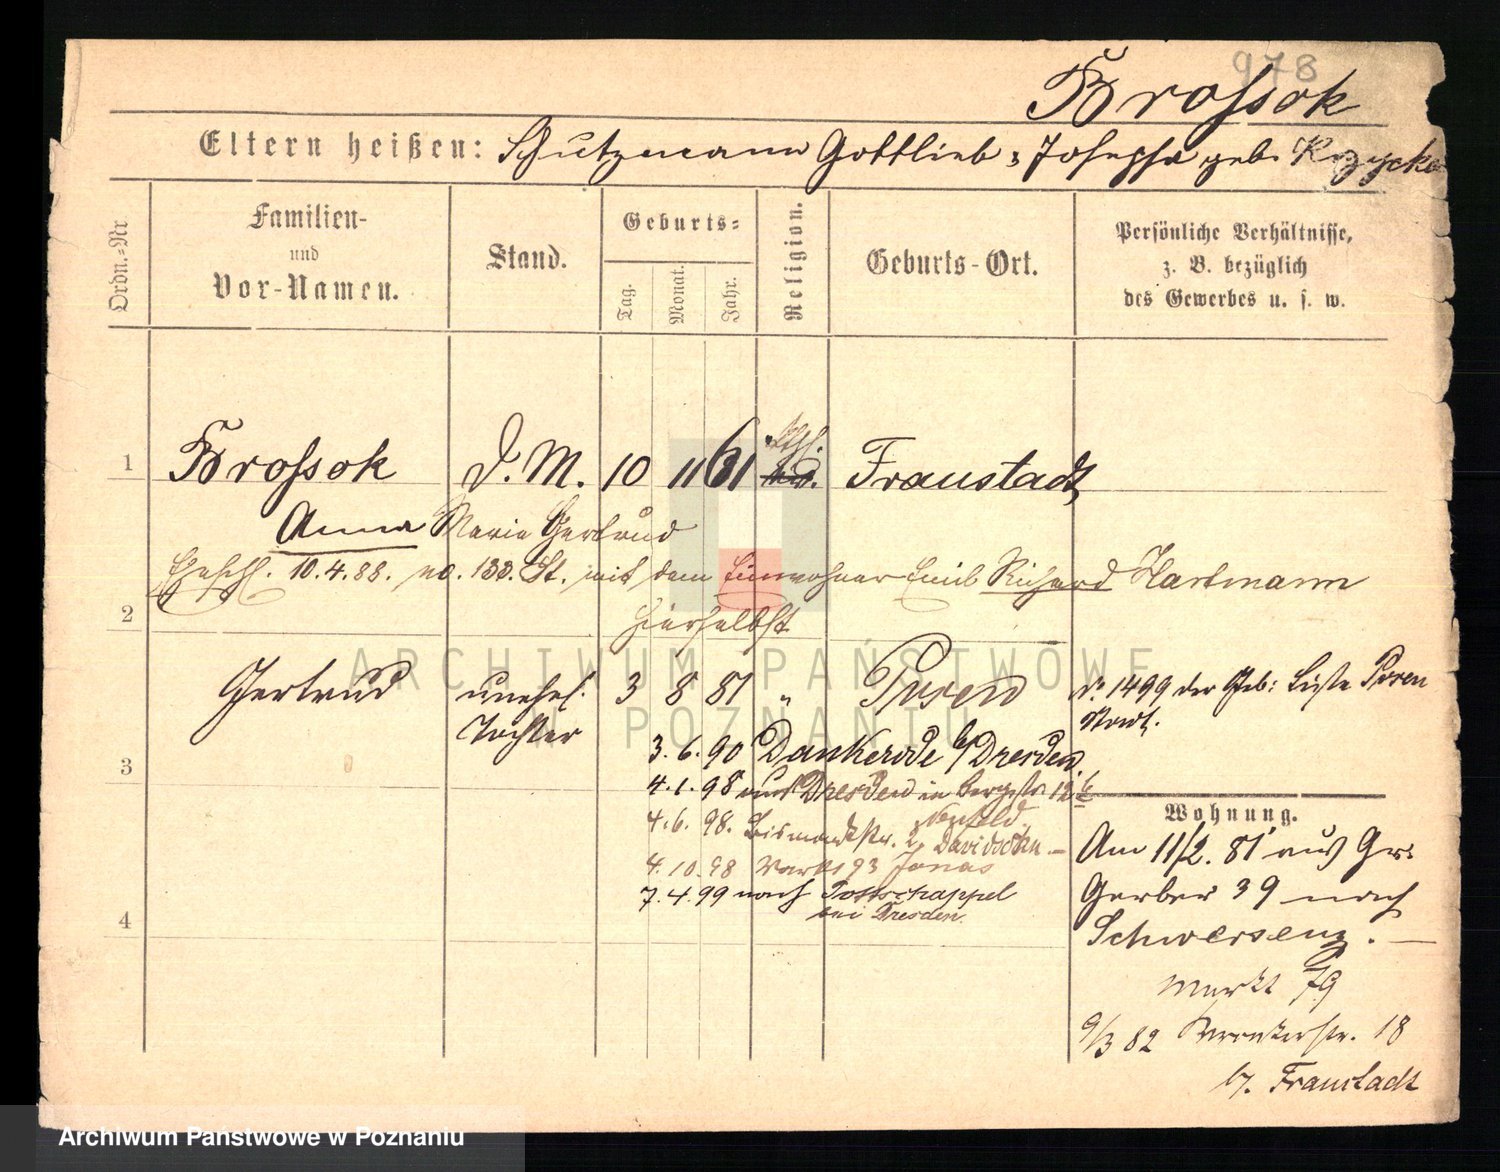 978
Brossok
Eltern heißen: Schutzmann Gottlieb u Josepha geb.
Ordn.-Nr
Familien-
und
Vor-Namen.
Stand.
Geburts=
Tag.
Monat.
Jahr.
Religion.
Geburts-Ort.
Persönliche Verhältnisse,
z. B. bezüglich
des Gewerbes u. s. w.
1 Brossok D. M. 10 11 61 kth. Fraustadt
Anna Maria Gertrud
Eheschl. 10.4.88. No. 133. St. mit dem Einwohner Emil Richard Hartmann
2
hierselbst
Gertrud unehel. 3 8 81 " Posen No 1499 der Geb: Liste Posen
Tochter
Stadt.
3
3.6.90 Dankerode b/ Dresden.
4.1.98 aus Dresden in Bergstr. 12b
4.6. 98. Bismarckstr. 2. Davidsohn —
4.10.98 Markt 93 Jonas
7.4.99 nach Pottschappel
bei Dresden.
4
Wohnung.
Am 11/2. 81 aus Gr.
Gerber 39 nach
Schwersenz. —
Markt 79
9/3 82 18
b/. Fraustadt
ARCHIWUM PAŃSTWOWE
W POZNANIU
Archiwum Państwowe w Poznaniu